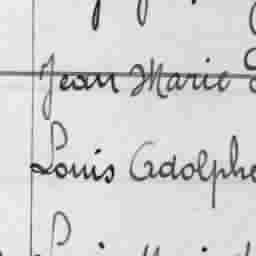 Jean Marie
Louis Adolphe